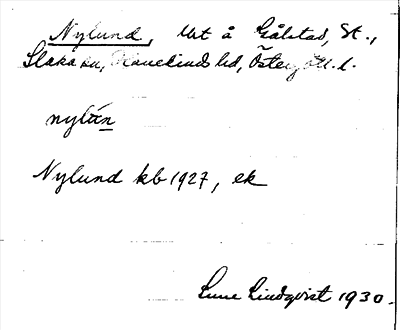 Nylund, Urt å Gålstad, St.,
Slaka sn, Hanekinds hd, Östergötl. l.
nylún
Nylund kb 1927, ek
Sune Lindqvist 1930.